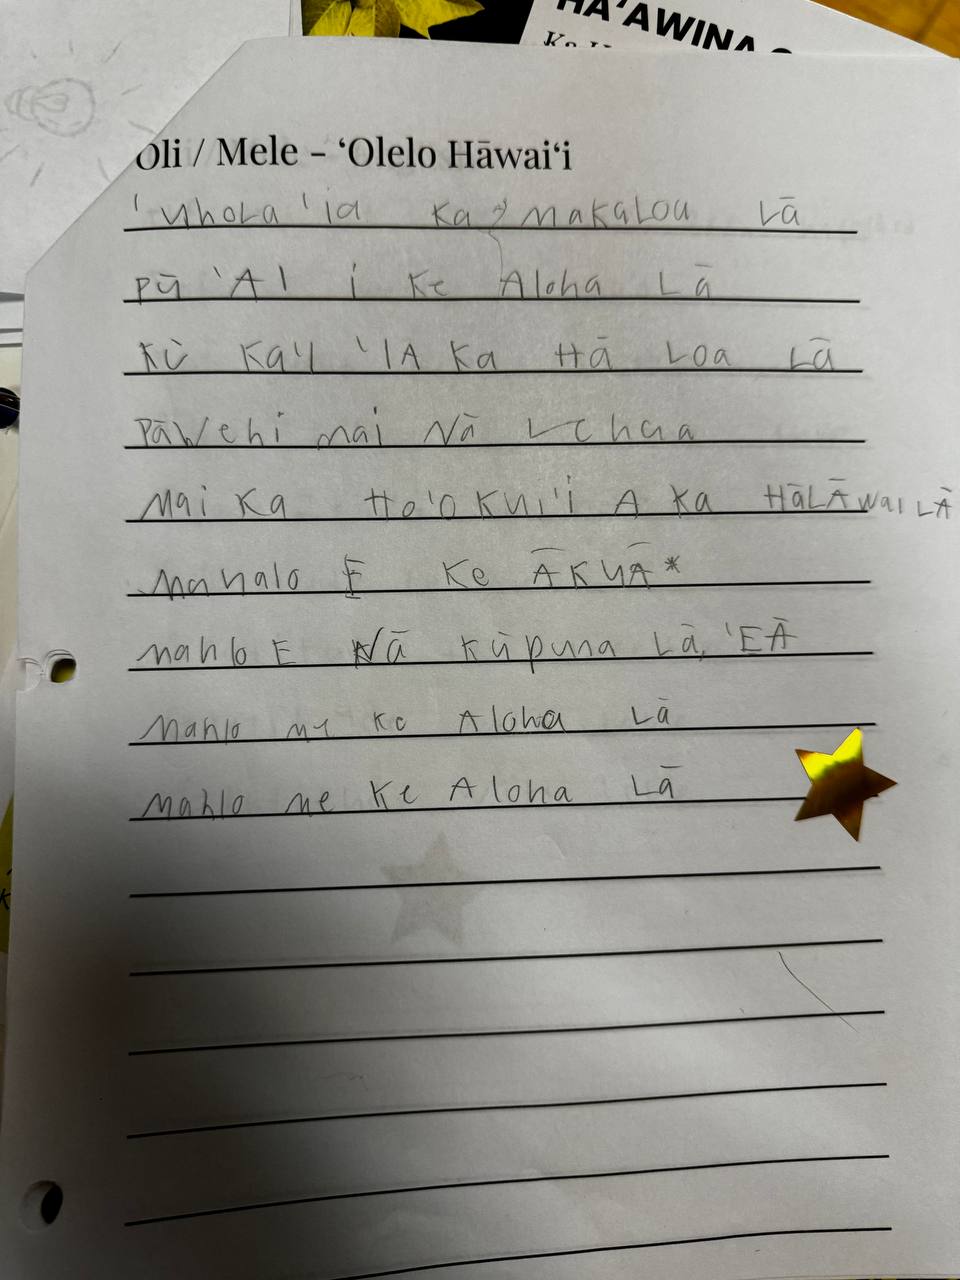 HA'AWINA
Oli / Mele – ʻOlelo Hāwaiʻi
'uhola 'ia Ka makaLoa Lā
pū 'AI i Ke Aloha Lā
Kū Ka'I 'IA Ka Hā Loa Lā
PāWehi mai Nā Lehua
Mai Ka Ho'oKui'i A Ka HāLĀwai LĀ
Mahalo E Ke ĀKUĀ*
mahlo E Nā Kūpuna Lā, 'EĀ
Mahlo me Ke Aloha Lā
Mahlo me Ke Aloha Lā